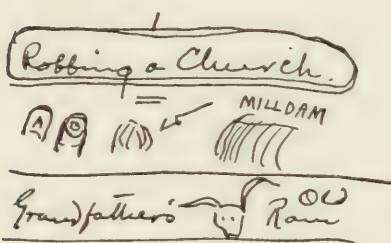 1
Robbing a Church.
MILLDAM
A B
Grandfather's Old Ram